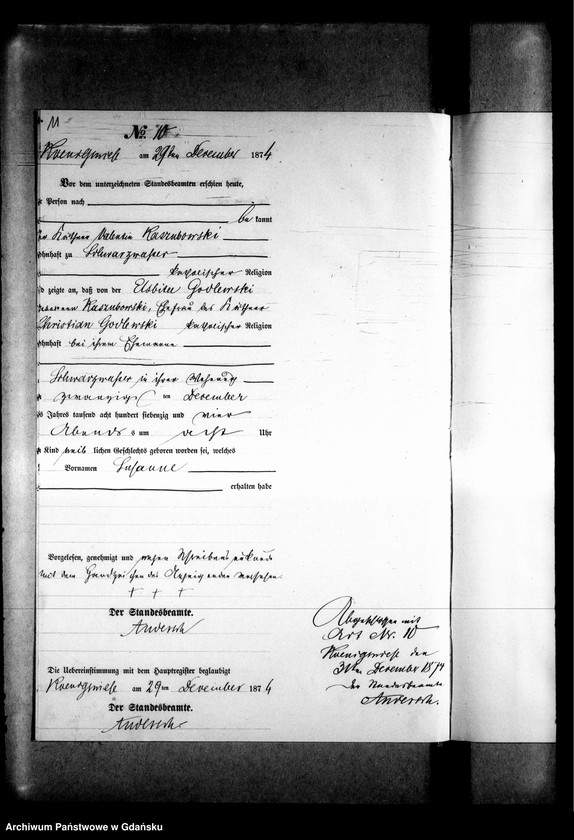 11
No. 10
Koenigswiese am 29ten December 1874
Vor dem unterzeichneten Standesbeamten erschien heute,
Person nach
be kannt
Käthner Valentin Kaszubowski
ohnhaft zu Schwarzwasser
katholischer Religion
d zeigte an, daß von der Elsbieta Godlewski
geborenen Kaszubowski, Ehefrau des Käthner
Christian Godlewski katholischer Religion
ohnhaft bei ihrem Ehemanne
Schwarzwasser in ihrer Wohnung
zwanzigs ten December
s Jahres tausend acht hundert siebenzig und vier
Abends um acht Uhr
Kind weib lichen Geschlechts geboren worden sei, welches
Vornamen Susanne
erhalten habe
Vorgelesen, genehmigt und wegen Schreibens
mit dem Handzeichen des Anzeigenden versehen.
+ + +
Der Standesbeamte.
Andersch
Die Uebereinstimmung mit dem Hauptregister beglaubigt
Koenigswiese am 29ten December 1874
Der Standesbeamte.
Andersch
Abgeschlossen mit
Art Nr. 10
Koenigswiese den
31ten December 1874
Der Standesbeamte
Andersch.
Archiwum Państwowe w Gdańsku